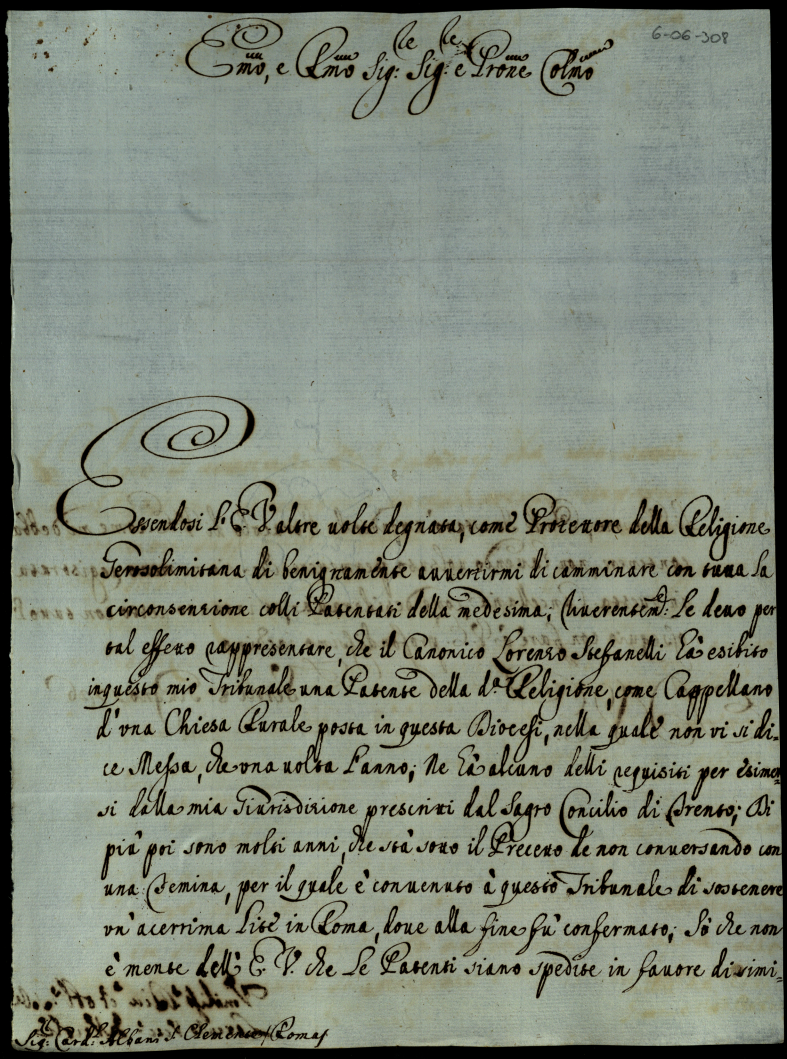 6-06-308
Emo, e Rmo Sig:re Sig:re e Prone Colmo
Essendosi l'E. V. altre uolte degnata, come Protettore della Religione
Gerosolimitana di benignamente auuertirmi di camminare con tutta la
circonsenzione colli Patentati della medesima; Riuerentemte: Le deuo per
tal effetto rappresentare, che il Canonico Lorenzo Stefanelli hà esibito
in questo mio Tribunale una Patente della da. Religione, come Cappellano
d'vna Chiesa Rurale posta in questa Diocesi, nella quale non vi si di=
ce Messa, che vna uolta l'anno; Ne hà alcuno delli requisiti per esimer=
si dalla mia Giurisdizione prescritti dal Sagro Concilio di Trento; Di
più poi sono molti anni, che stà sotto il Precetto de non conuersando con
una Femina, per il quale è conuenuto à questo Tribunale di sostenere
vn'acerrima Lite in Roma, doue alla fine fù confermato; Sò che non
è mente dell'E. V. che le Patenti siano spedite in fauore di simi=
Sig: Cardl: Albani S. Clemente / Roma /